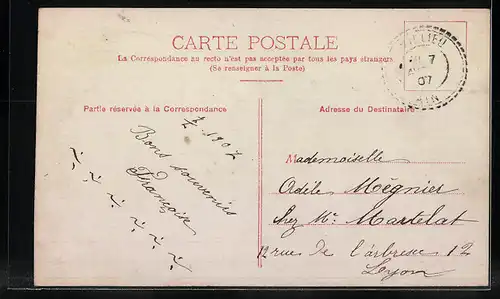 CARTE POSTALE
La Correspondance au recto n'est pas acceptée par tous les pays étrangers
(Se renseigner à la Poste)
7
07
AIN
Partie réservée à la Correspondance
Adresse du Destinataire
1907
Bons souvenirs
Françoise
Mademoiselle
Adèle Mégnier
chez Mr. Martelat
12 rue de l'arbresec 12
Lyon